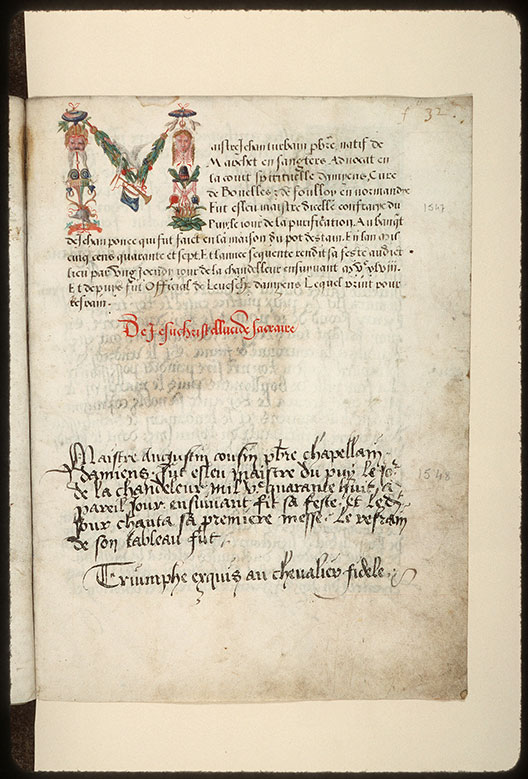 f 32.
Maistre Jehan turbain pbre natif de
Maichet en sangters Advocat en
la court spirituelle damyens Cure
de Bouelles & de foulloy en normandie
Fut esleu maistre dicelle confrarye du
Puy le iour de la purification. Au banqt
de Jehan ponee qui fut faict en la maison du pot destain. En lan mil
cinq cens quarante et sept. Et lannee sequente rendit sa feste audict
lieu par Ung Joeudy iour de la chandelleur ensuivant
Et depuys fut Official de Levesche damyens Lequel print pour
Refrain.
1547
De Jesuchrist ellucide sacraire
Maistre Augustin cousin pbre chapellain
damiens fut esleu maistre du puy le Jor
de la chandeleur mil Vc quarante huit et
pareil Jour ensuivant fit sa feste et led
Jour chanta sa premiere messe. Le refrain
de son tableau fut.
1548
Triumphe exquis au chevalier fidele